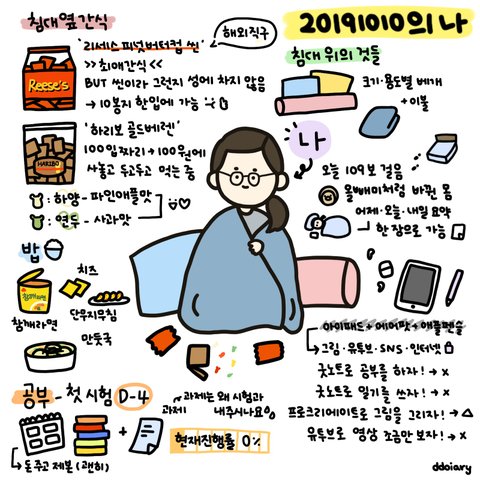 침대 옆 간식
'리세스 피넛버터컵 씬'
해외직구
>>최애간식<<
BUT 씬이라 그런지 성에 차지 않음
→ 10봉지 한입에 가능
Reese's
'하리보 골드베렌'
100입짜리 → 100원에
사놓고 두고두고 먹는 중
HARIBO
: 하양 - 파인애플맛
: 연두 - 사과맛
밥
치즈
참깨라면
참깨라면
단무지무침
만둣국
공부 - 첫 시험 D-4
→ 돈 주고 제본 (괜히)
과제
과제는 왜 시험과
내주시나요
현재진행률 0%
20191010의 나
침대 위의 것들
크기·용도별 베개
+이불
나
오늘 109보 걸음
올빼미처럼 바뀐 몸
어제·오늘·내일 요약
한 장으로 가능
아이패드 + 에어팟 + 애플펜슬
→ 그림·유튜브·SNS·인터넷
굿노트로 공부를 하자! → x
굿노트로 일기를 쓰자! → x
프로크리에이트로 그림을 그리자! → △
유튜브로 영상 조금만 보자! → x
ddoiary